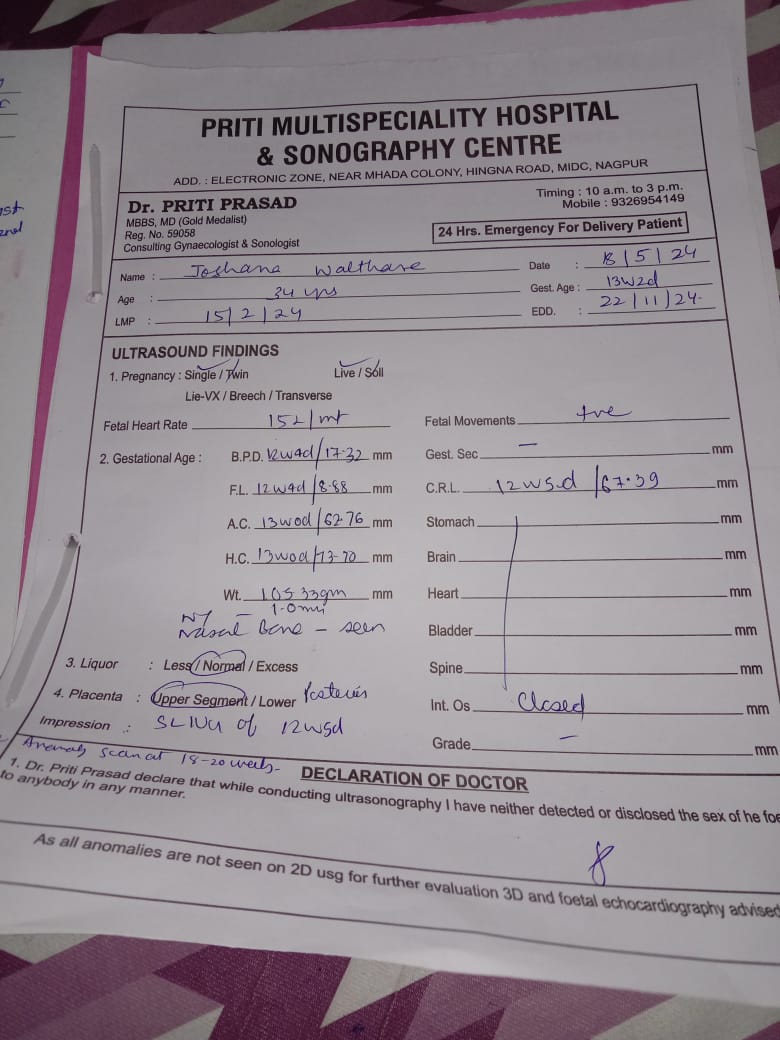 PRITI MULTISPECIALITY HOSPITAL
& SONOGRAPHY CENTRE
ADD. : ELECTRONIC ZONE, NEAR MHADA COLONY, HINGNA ROAD, MIDC, NAGPUR
Dr. PRITI PRASAD
MBBS, MD (Gold Medalist)
Reg. No. 59058
Consulting Gynaecologist & Sonologist
Timing : 10 a.m. to 3 p.m.
Mobile : 9326954149
24 Hrs. Emergency For Delivery Patient
Name : Joshana Walthare Date : 18/5/24
Age : 34 yrs Gest. Age : 13w2d
LMP : 15/2/24 EDD. : 22/11/24
ULTRASOUND FINDINGS
1. Pregnancy : Single / Twin Live / Soll
Lie-VX / Breech / Transverse
Fetal Heart Rate 152/mt Fetal Movements +ve
2. Gestational Age : B.P.D. 12w4d/17.32 mm Gest. Sec — mm
F.L. 12w4d/8.88 mm C.R.L. 12w5d/67.39 mm
A.C. 13w0d/62.76 mm Stomach mm
H.C. 13w0d/73.70 mm Brain mm
Wt. 105.33gm mm Heart mm
NT – 1.0mm
Nasal Bone – seen Bladder mm
3. Liquor : Less / Normal / Excess Spine mm
4. Placenta : Upper Segment / Lower Posterior Int. Os Closed mm
Impression : SLIUG of 12w5d Grade – mm
Anomaly scan at 18-20 weeks-
DECLARATION OF DOCTOR
1. Dr. Priti Prasad declare that while conducting ultrasonography I have neither detected or disclosed the sex of he foe
to anybody in any manner.
As all anomalies are not seen on 2D usg for further evaluation 3D and foetal echocardiography advised